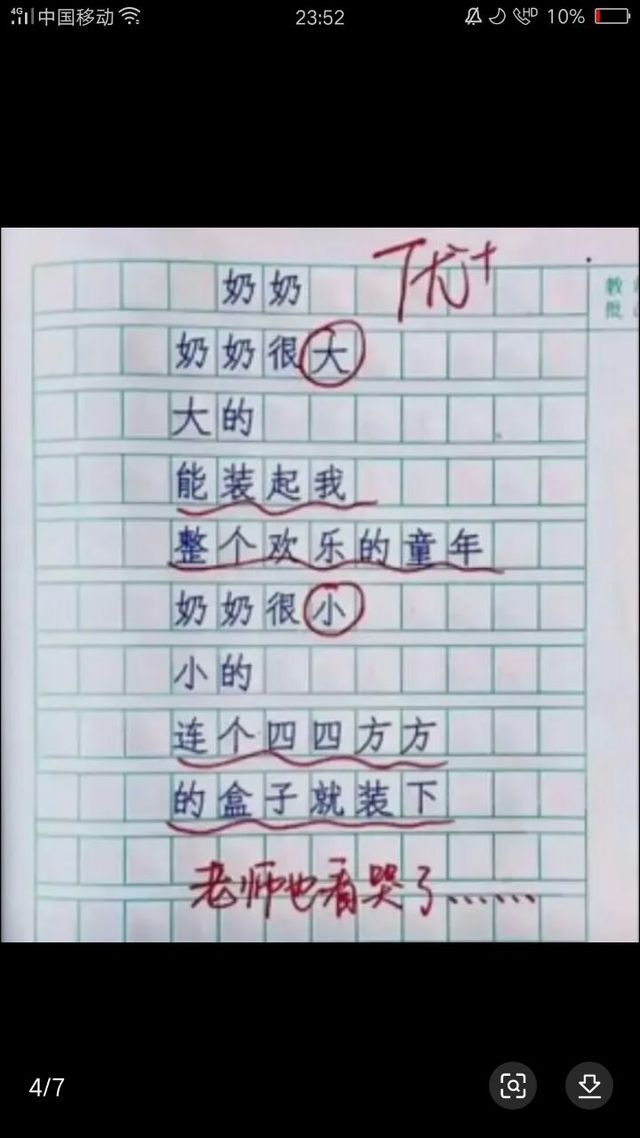 4G 中国移动 23:52 HD 10%
优+
奶奶
奶奶很大
大的
能装起我
整个欢乐的童年
奶奶很小
小的
连个四四方方
的盒子就装下
老师也看哭了……
4/7